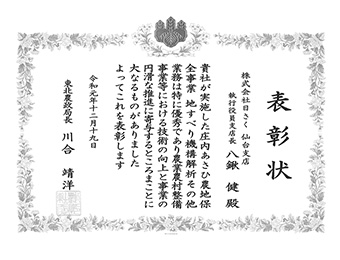 表彰状
株式会社日さく 仙台支店
執行役員支店長 八鍬 健 殿
貴社が実施した庄内あさひ農地保
全事業 地すべり機構解析その他
業務は特に優秀であり農業農村整備
事業等における技術の向上と事業の
円滑な推進に寄与するところまことに
大なるものがありました
よってこれを表彰します
令和元年十二月十九日
東北農政局長 川合 靖洋